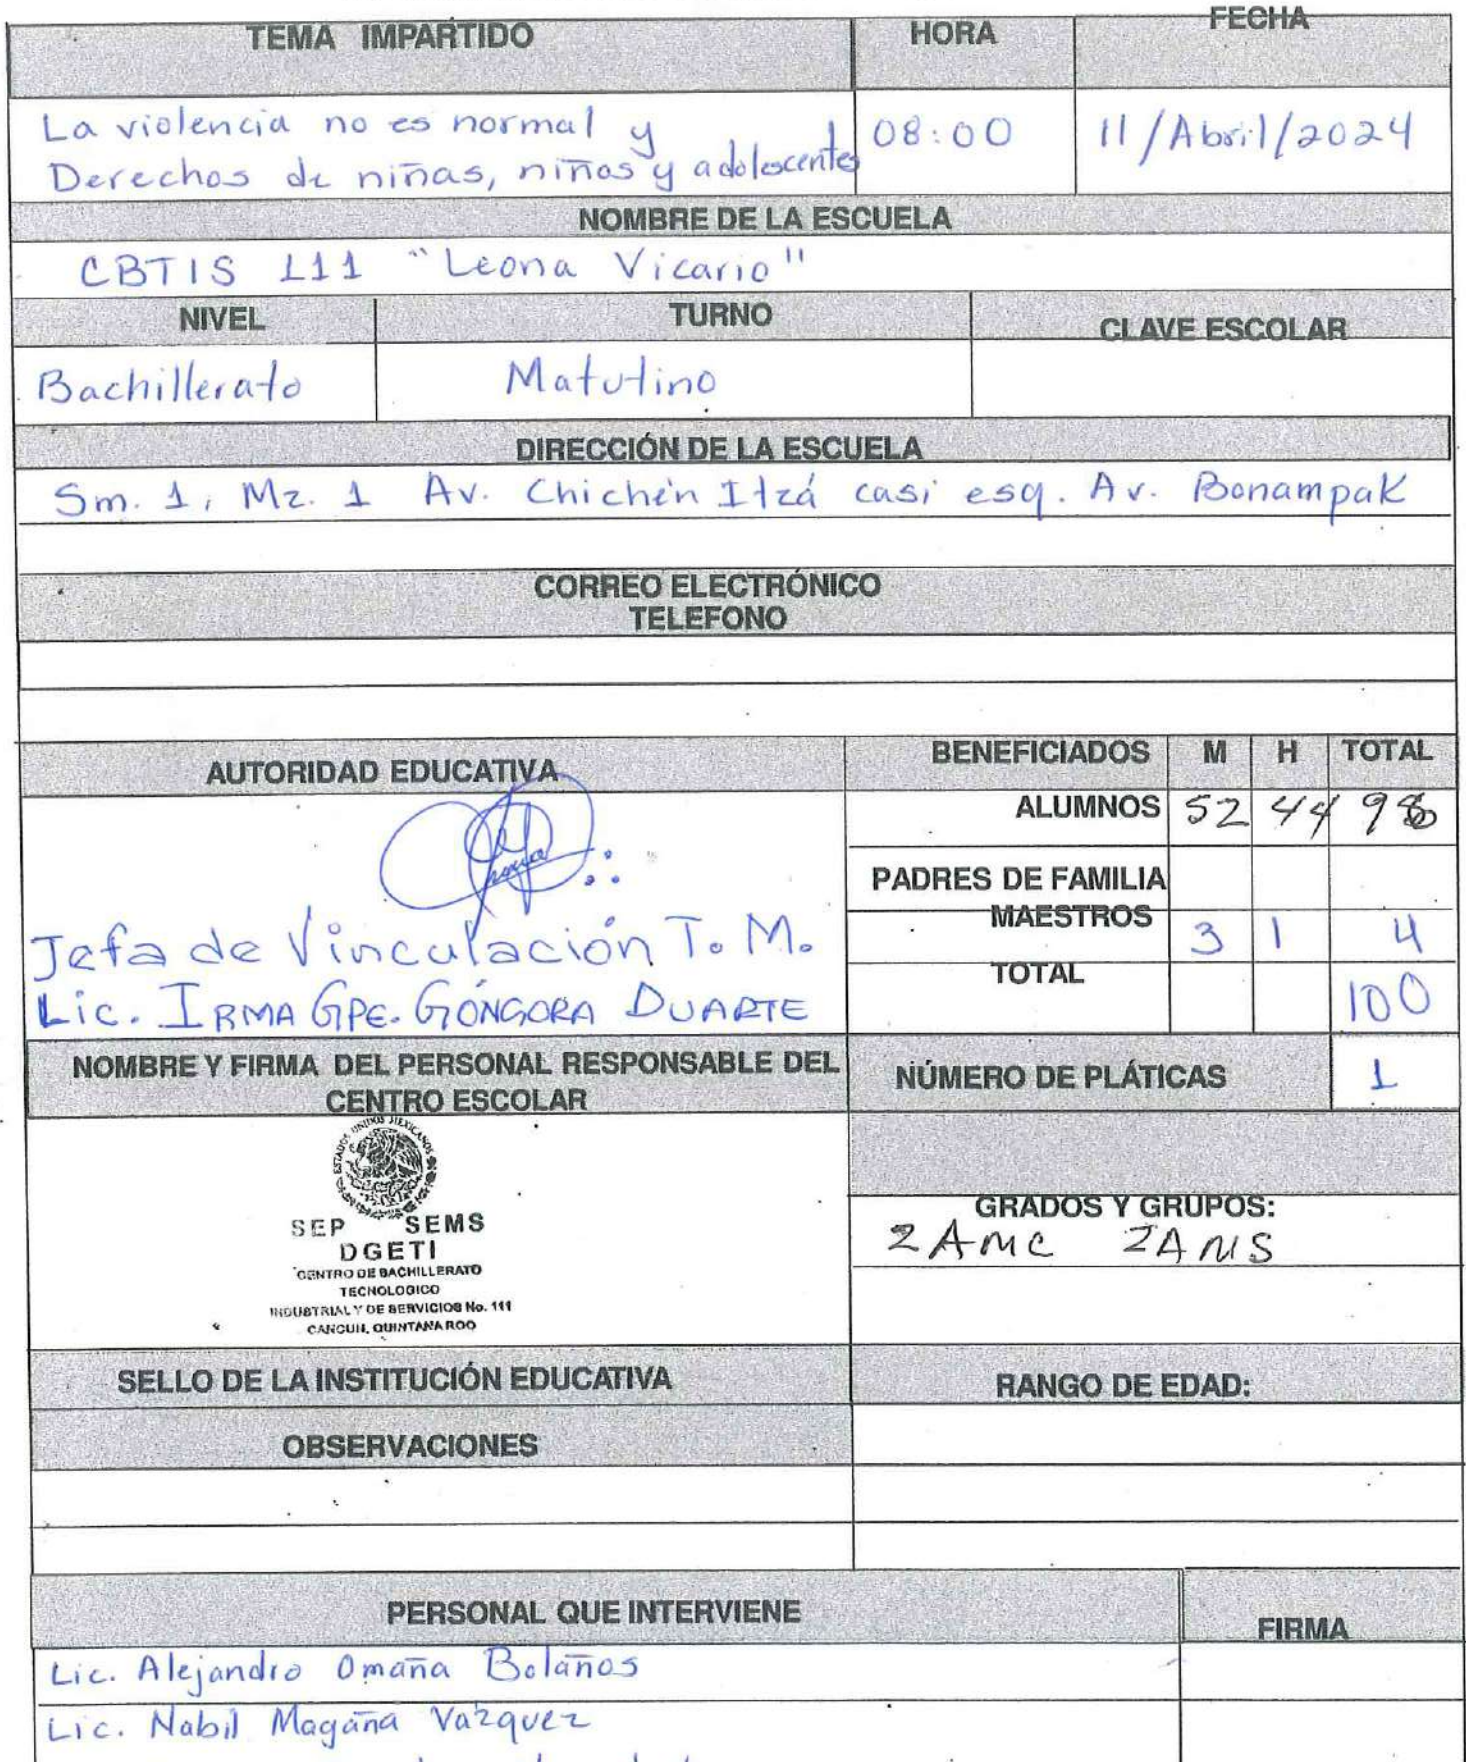 TEMA IMPARTIDO HORA FECHA
La violencia no es normal y
Derechos de niñas, niños y adolescentes 08:00 11/Abril/2024
NOMBRE DE LA ESCUELA
CBTIS 111 "Leona Vicario"
NIVEL TURNO CLAVE ESCOLAR
Bachillerato Matutino
DIRECCIÓN DE LA ESCUELA
Sm. 1, Mz. 1 Av. Chichén Itzá casi esq. Av. Bonampak
CORREO ELECTRÓNICO
TELEFONO
AUTORIDAD EDUCATIVA BENEFICIADOS M H TOTAL
ALUMNOS 52 44
PADRES DE FAMILIA
MAESTROS 3 1 4
TOTAL 100
Jefa de Vinculación T. M.
Lic. IRMA GPE. GÓNGORA DUARTE
NOMBRE Y FIRMA DEL PERSONAL RESPONSABLE DEL
CENTRO ESCOLAR
NÚMERO DE PLÁTICAS 1
ESTADOS UNIDOS MEXICANOS
SEP SEMS
DGETI
CENTRO DE BACHILLERATO
TECNOLOGICO
INDUSTRIAL Y DE SERVICIOS No. 111
CANCUN, QUINTANA ROO
GRADOS Y GRUPOS:
2AMC 2AMS
SELLO DE LA INSTITUCIÓN EDUCATIVA RANGO DE EDAD:
OBSERVACIONES
PERSONAL QUE INTERVIENE FIRMA
Lic. Alejandro Omaña Bolaños
Lic. Nabil Magaña Vázquez